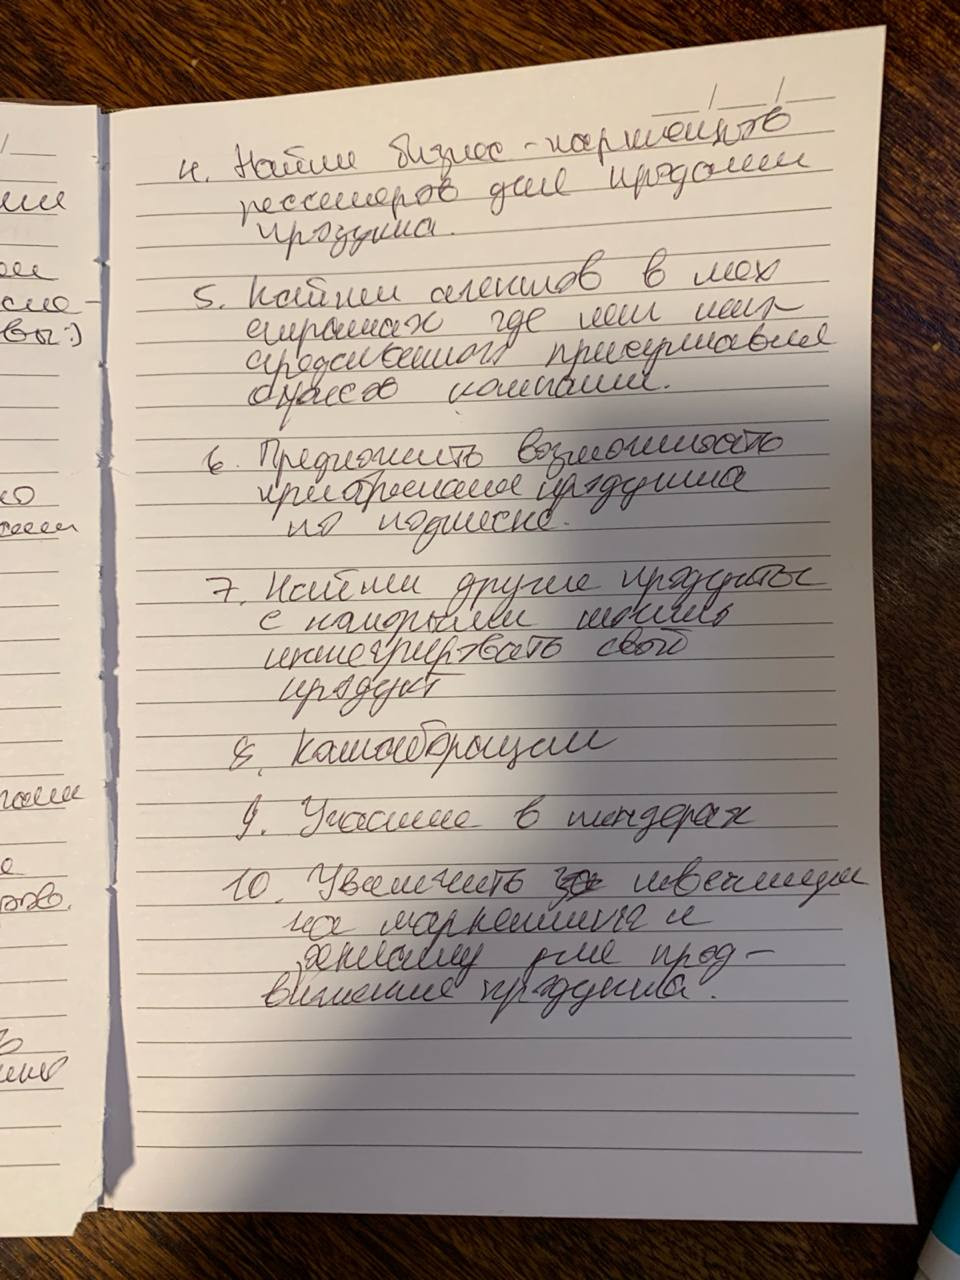 4. Найти бизнес-партнеров
рессилеров для продажи
продукта.
5. Найти агентов в тех
странах где нет непо
средственного присутствия
офисов компании.
6. Предложить возможность
приобретения продукта
по подписке.
7. Найти другие продукты
с которыми можно
интегрировать свой
продукт
8. Коллаборации
9. Участие в тендерах
10. Увеличить инвестиции
на маркетинг и
рекламу для прод-
вижения продукта.